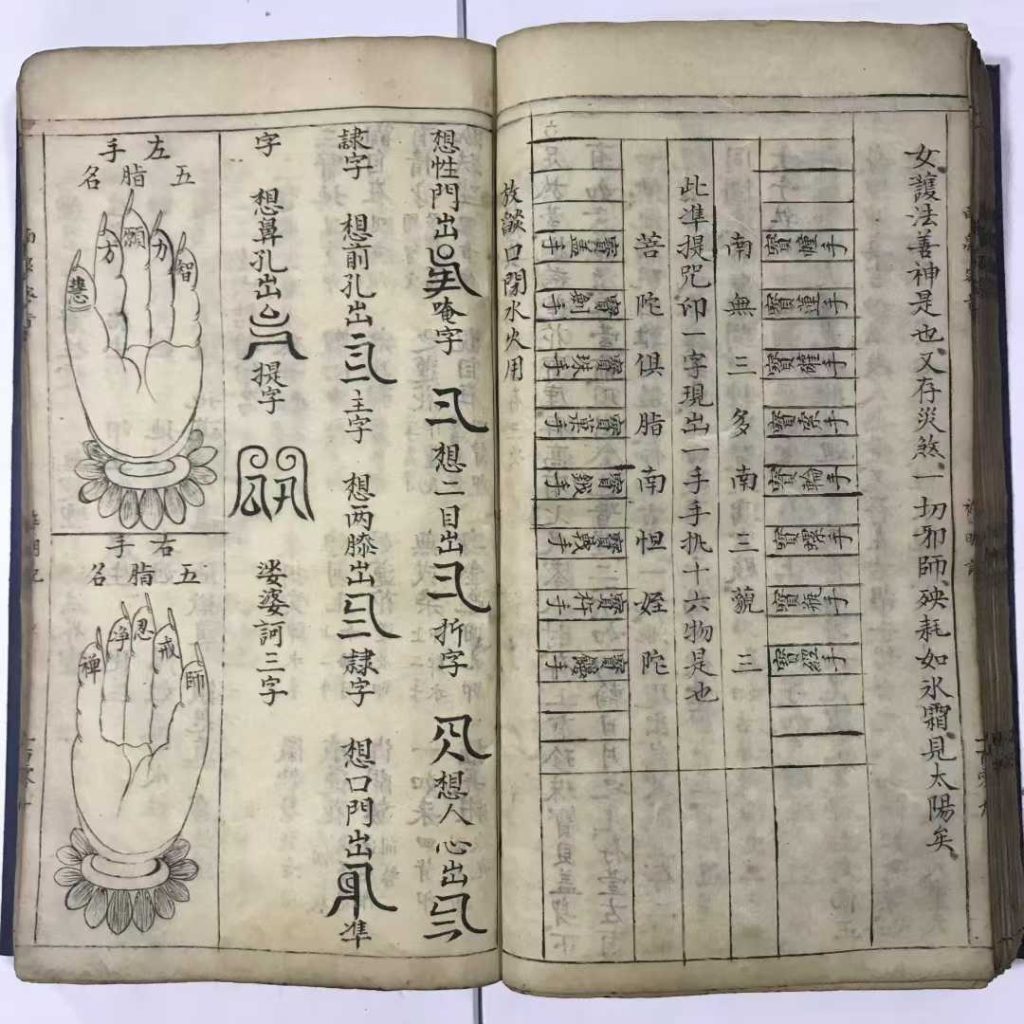 女護法善神是也又存災煞一切邪師殃耗如氷霜見太陽矣
寳幢手
寳蓮手
寳索手
寳輪手
寳螺手
寳瓶手
寳經手
南無三多南三藐三
此準提咒印一字現出一手手执十六物是也
菩陀俱脂南怛姪陀
寳盖手
寳劍手
寳珠手
寳菓手
寳鉞手
寳杵手
放談口閉水火用
想性門出 唵字 想二目出 折字 想人心出
隷字 想前孔出 主字 想两膝出 隷字 想口門出 準
字 想鼻孔出 提字 娑婆訶三字
左手
五脂名
智
力
願
方
慧
右手
五脂名
師
戒
忍
淨
禅